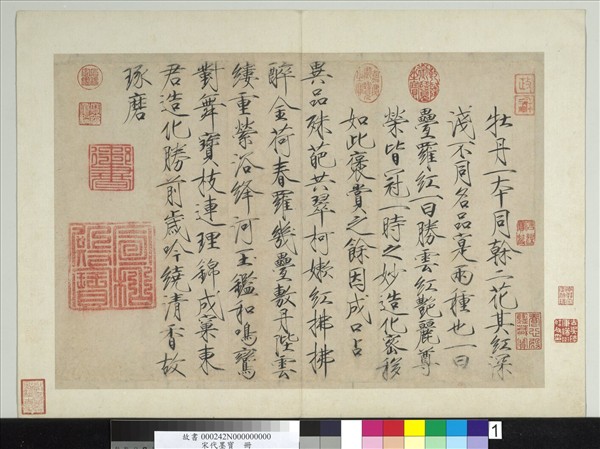 牡丹一本同榦二花其紅深
淺不同名品寔兩種也一曰
疊羅紅一曰勝雲紅艷麗尊
榮皆冠一時之妙造化密移
如此褒賞之餘因成口占
異品殊葩共翠柯嫩紅拂拂
醉金荷春羅幾疊敷丹陛雲
縷重縈浴絳河玉鑑和鳴鸞
對舞寶枝連理錦成窠東
君造化勝前歲吟繞清香故
琢磨
御書
故書 000242N000000000
宋代墨寶 冊
1